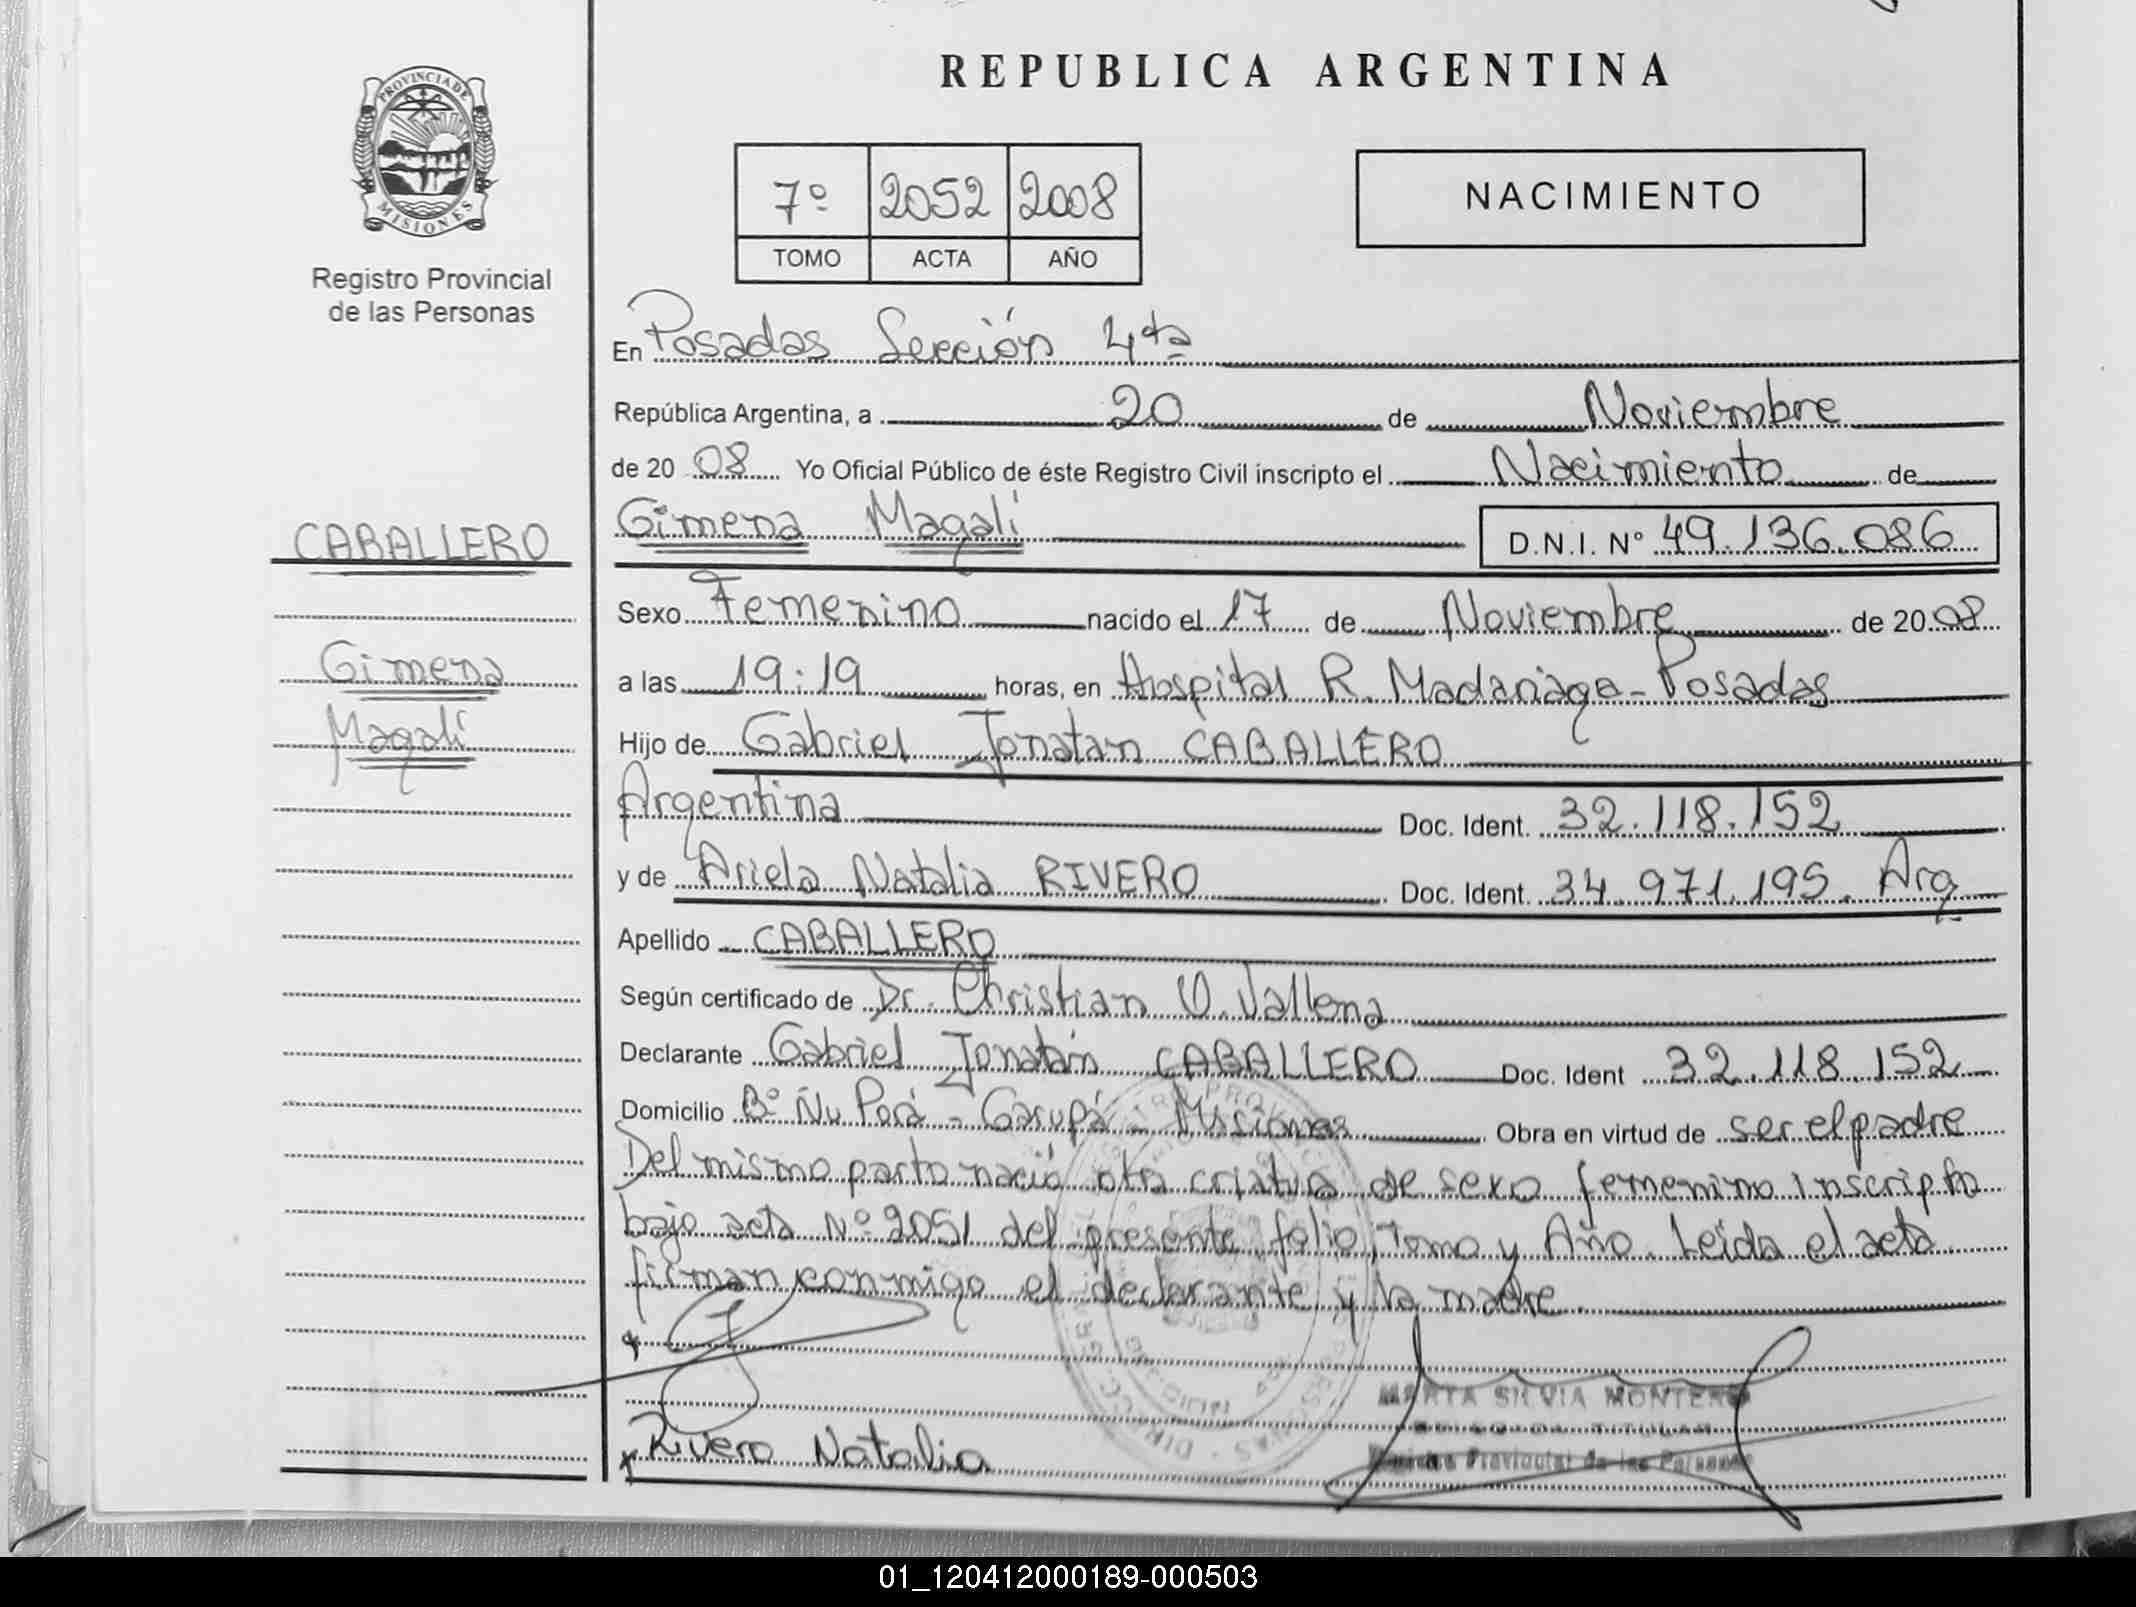 PROVINCIA DE
MISIONES
Registro Provincial
de las Personas
REPUBLICA ARGENTINA
7º 2052 2008
TOMO ACTA AÑO
NACIMIENTO
En Posadas Sección 4ta
República Argentina, a 20 de Noviembre
de 20 08 Yo Oficial Público de éste Registro Civil inscripto el Nacimiento de
CABALLERO
Gimena Magalí D.N.I. Nº 49.136.086
Sexo Femenino nacido el 17 de Noviembre de 20 08
Gimena
a las 19:19 horas, en Hospital R. Madariaga - Posadas
Magalí
Hijo de Gabriel Jonatan CABALLERO
Argentina Doc. Ident. 32.118.152
y de Ariela Natalia RIVERO Doc. Ident. 34.971.195. Arg
Apellido CABALLERO
Según certificado de Dr. Christian O. Vallena
Declarante Gabriel Jonatán CABALLERO Doc. Ident 32.118.152
Domicilio Bº Ñu Porá - Garupá - Misiones Obra en virtud de ser el padre
Del mismo parto nació otra criatura de sexo femenino inscripta
bajo acta Nº 2051 del presente folio, Tomo y Año. Leída el acta
firman conmigo el declarante y la madre.
MARTA SILVIA MONTERO
TITULAR
Registro Provincial de las Personas
x Rivero Natalia
01_120412000189-000503